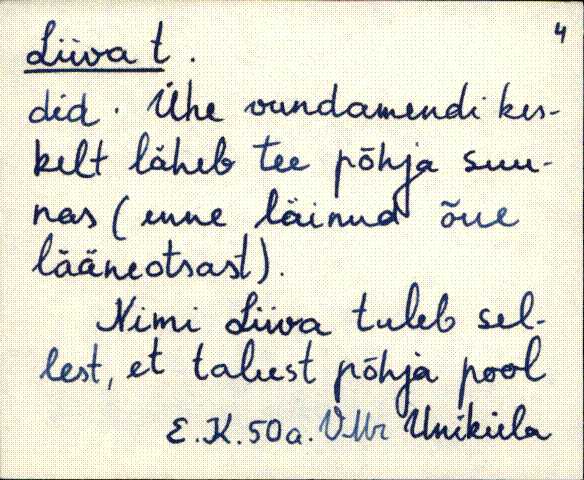 4
Liiva t.
did. Ühe vundamendi kes-
kelt läheb tee põhja suu-
nas (enne läinud õue
lääneotsast).
Nimi Liiva tuleb sel-
lest, et talust põhja pool
E.K.50a. VMr Uniküla